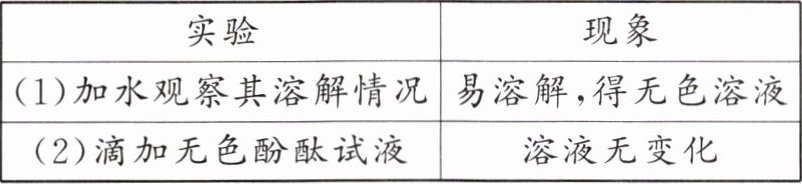 实验 现象
(1)加水观察其溶解情况 易溶解,得无色溶液
(2)滴加无色酚酞试液 溶液无变化